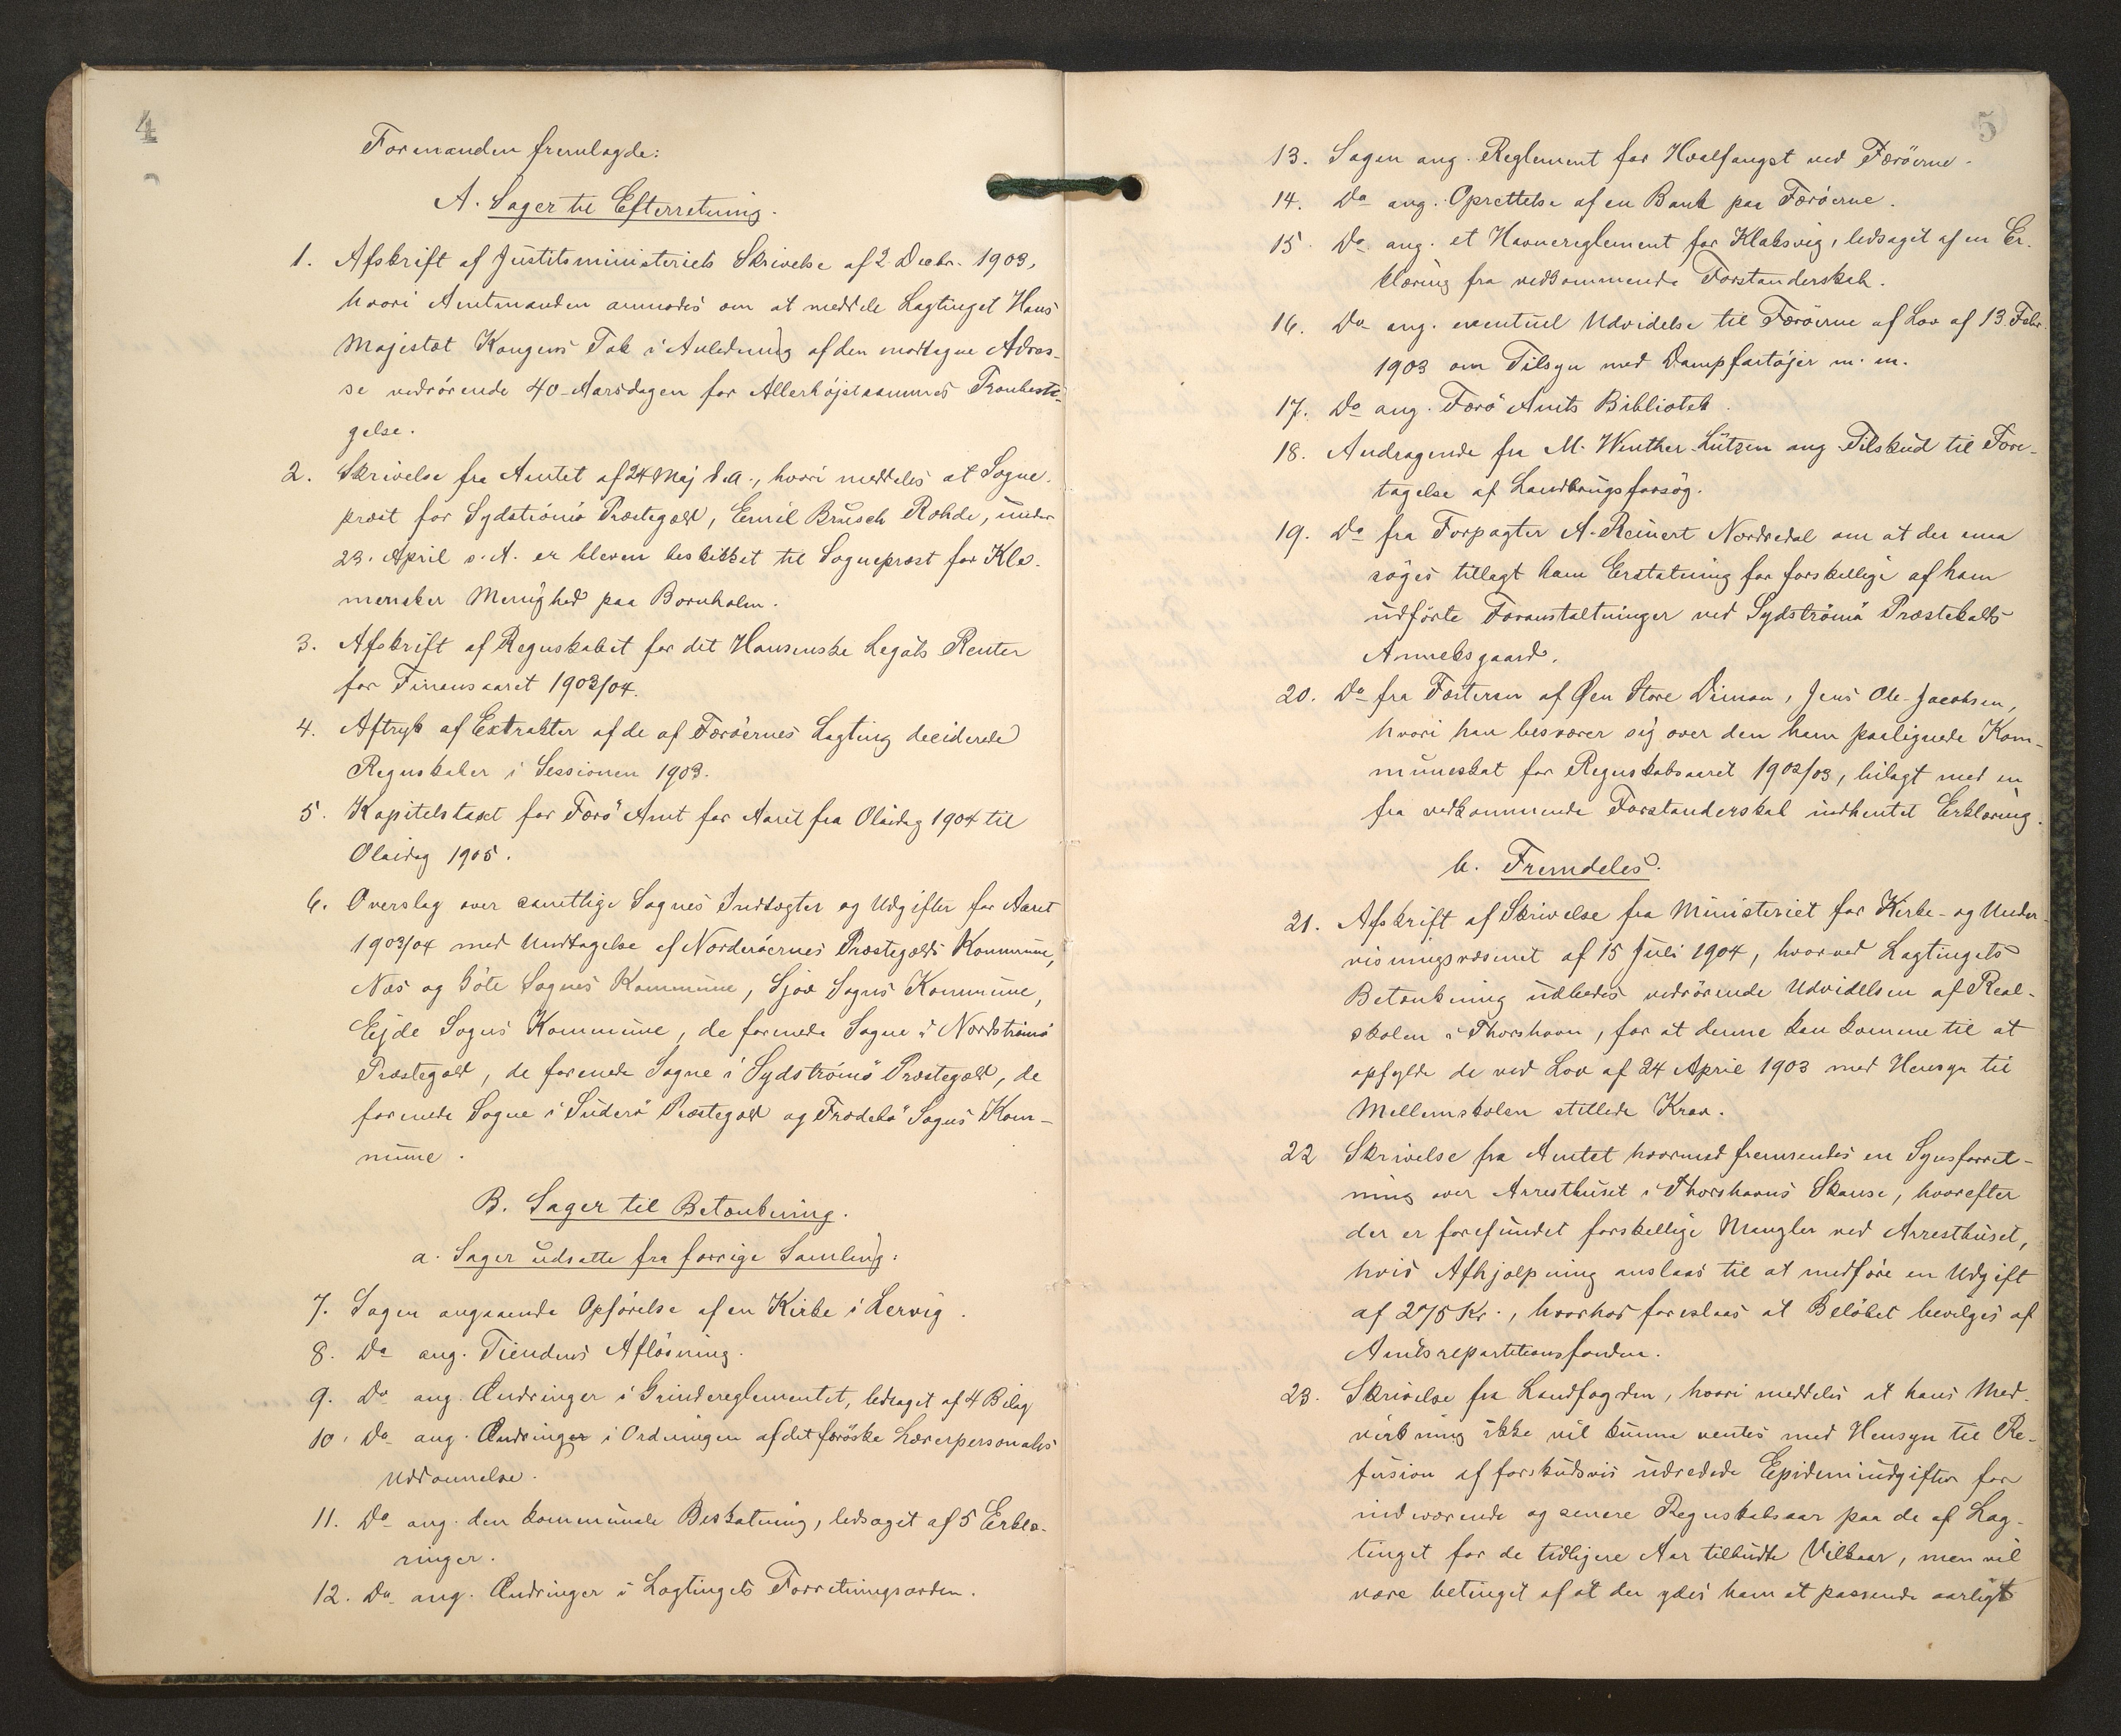 4
Formanden fremlagde:
A. Sager til Efterretning.
1. Afskrift af Justitsministeriets Skrivelse af 2 Decbr. 1903,
hvori Amtmanden anmodes om at meddele Lagtinget Hans
Majestæt Kongens Tak i Anledning af den modtagne Adres-
se vedrörende 40-Aarsdagen for Allerhöjstsammes Tronbesti-
gelse.
2. Skrivelse fra Amtet af 24 Maj d.A., hvori meddeles at Sogne-
præst for Sydströmö Præstegæld, Emil Brusch Rohde, under
23. April s.A. er bleven beskikket til Sognepræst for Kle-
mensker Menighed paa Bornholm.
3. Afskrift af Regnskabet for det Hansenske Legats Renter
for Finansaaret 1903/04.
4. Aftryk af Extrakter af de af Færöernes Lagting deciderede
Regnskaber i Sessionen 1903.
5. Kapitelstaxt for Færö Amt for Aaret fra Olaidag 1904 til
Olaidag 1905.
6. Overslag over samtlige Sognes Indtægter og Udgifter for Aaret
1903/04 med Undtagelse af Norderöernes Præstegælds Kommune,
Næs og Göte Sognes Kommune, Sjov Sogns Kommune,
Ejde Sogns Kommune, de forenede Sogne i Nordströmö
Præstegæld, de forenede Sogne i Sydströmö Præstegæld, de
forenede Sogne i Suderö Præstegæld og Frodebö Sogns Kom-
mune.
B. Sager til Betænkning.
a. Sager udsatte fra forrige Samling:
7. Sagen angaaende Opförelse af en Kirke i Lervig.
8. Do ang. Tiendens Aflösning.
9. Do ang. Ændringer i Grindereglementet, ledsaget af 4 Bilag
10. Do ang. Ændringer i Ordningen af det færöske Lærerpersonales
Uddannelse.
11. Do ang. den kommunale Beskatning, ledsaget af 5 Erklæ-
ringer.
12. Do ang. Ændringer i Lagtingets Forretningsorden.
5
13. Sagen ang. Reglement for Hvalfangst ved Færöerne.
14. Do ang. Oprettelse af en Bank paa Færöerne.
15. Do ang. et Havnereglement for Klaksvig, ledsaget af en Er-
klæring fra vedkommende Forstanderskab.
16. Do ang. eventuel Udvidelse til Færöerne af Lov af 13 Febr.
1903 om Tilsyn med Dampfartöjer m. m.
17. Do ang. Færö Amts Bibliotek.
18. Andragende fra M. Winther-Lützen ang Tilskud til Fore-
tagelse af Landbrugsforsög.
19. Do fra Forpagter A. Reinert Nordredal om at der maa
söges tillagt ham Erstatning for forskellige af ham
udförte Foranstaltninger ved Sydströmö Præstekalds
Anneksgaard.
20. Do fra Fæsteren af Øen Store Dimon, Jens Ole Jacobsen,
hvori han besværer sig over den ham paalignede Kom-
muneskat for Regnskabsaaret 1902/03, bilagt med en
fra vedkommende Forstanderskab indhentet Erklæring.
b. Fremdeles.
21. Afskrift af Skrivelse fra Ministeriet for Kirke- og Under-
visningsvæsenet af 15 Juli 1904, hvorved Lagtingets
Betænkning udbedes vedrörende Udvidelsen af Real-
skolen i Thorshavn, for at denne kan komme til at
opfylde de ved Lov af 24 April 1903 med Hensyn til
Mellemskolen stillede Krav.
22 Skrivelse fra Amtet hvormed fremsendes en Synsforret-
ning over Arresthuset i Thorshavns Skanse, hvorefter
der er forefundet forskellige Mangler ved Arresthuset,
hvis Afhjælpning anslaas til at medföre en Udgift
af 275 Kr., hvorhos foreslaas at Belöbet bevilges af
Amtsrepartitionsfonden.
23. Skrivelse fra Landfogden, hvori meddeles at hans Med-
virkning ikke vil kunne ventes med Hensyn til Re-
fusion af forskudsvis udredede Epidemiudgifter for
indeværende og senere Regnskabsaar paa de af Lag-
tinget for de tidligere Aar tilbudte Vilkaar, men vil
være betinget af at der ydes ham et passende aarligt